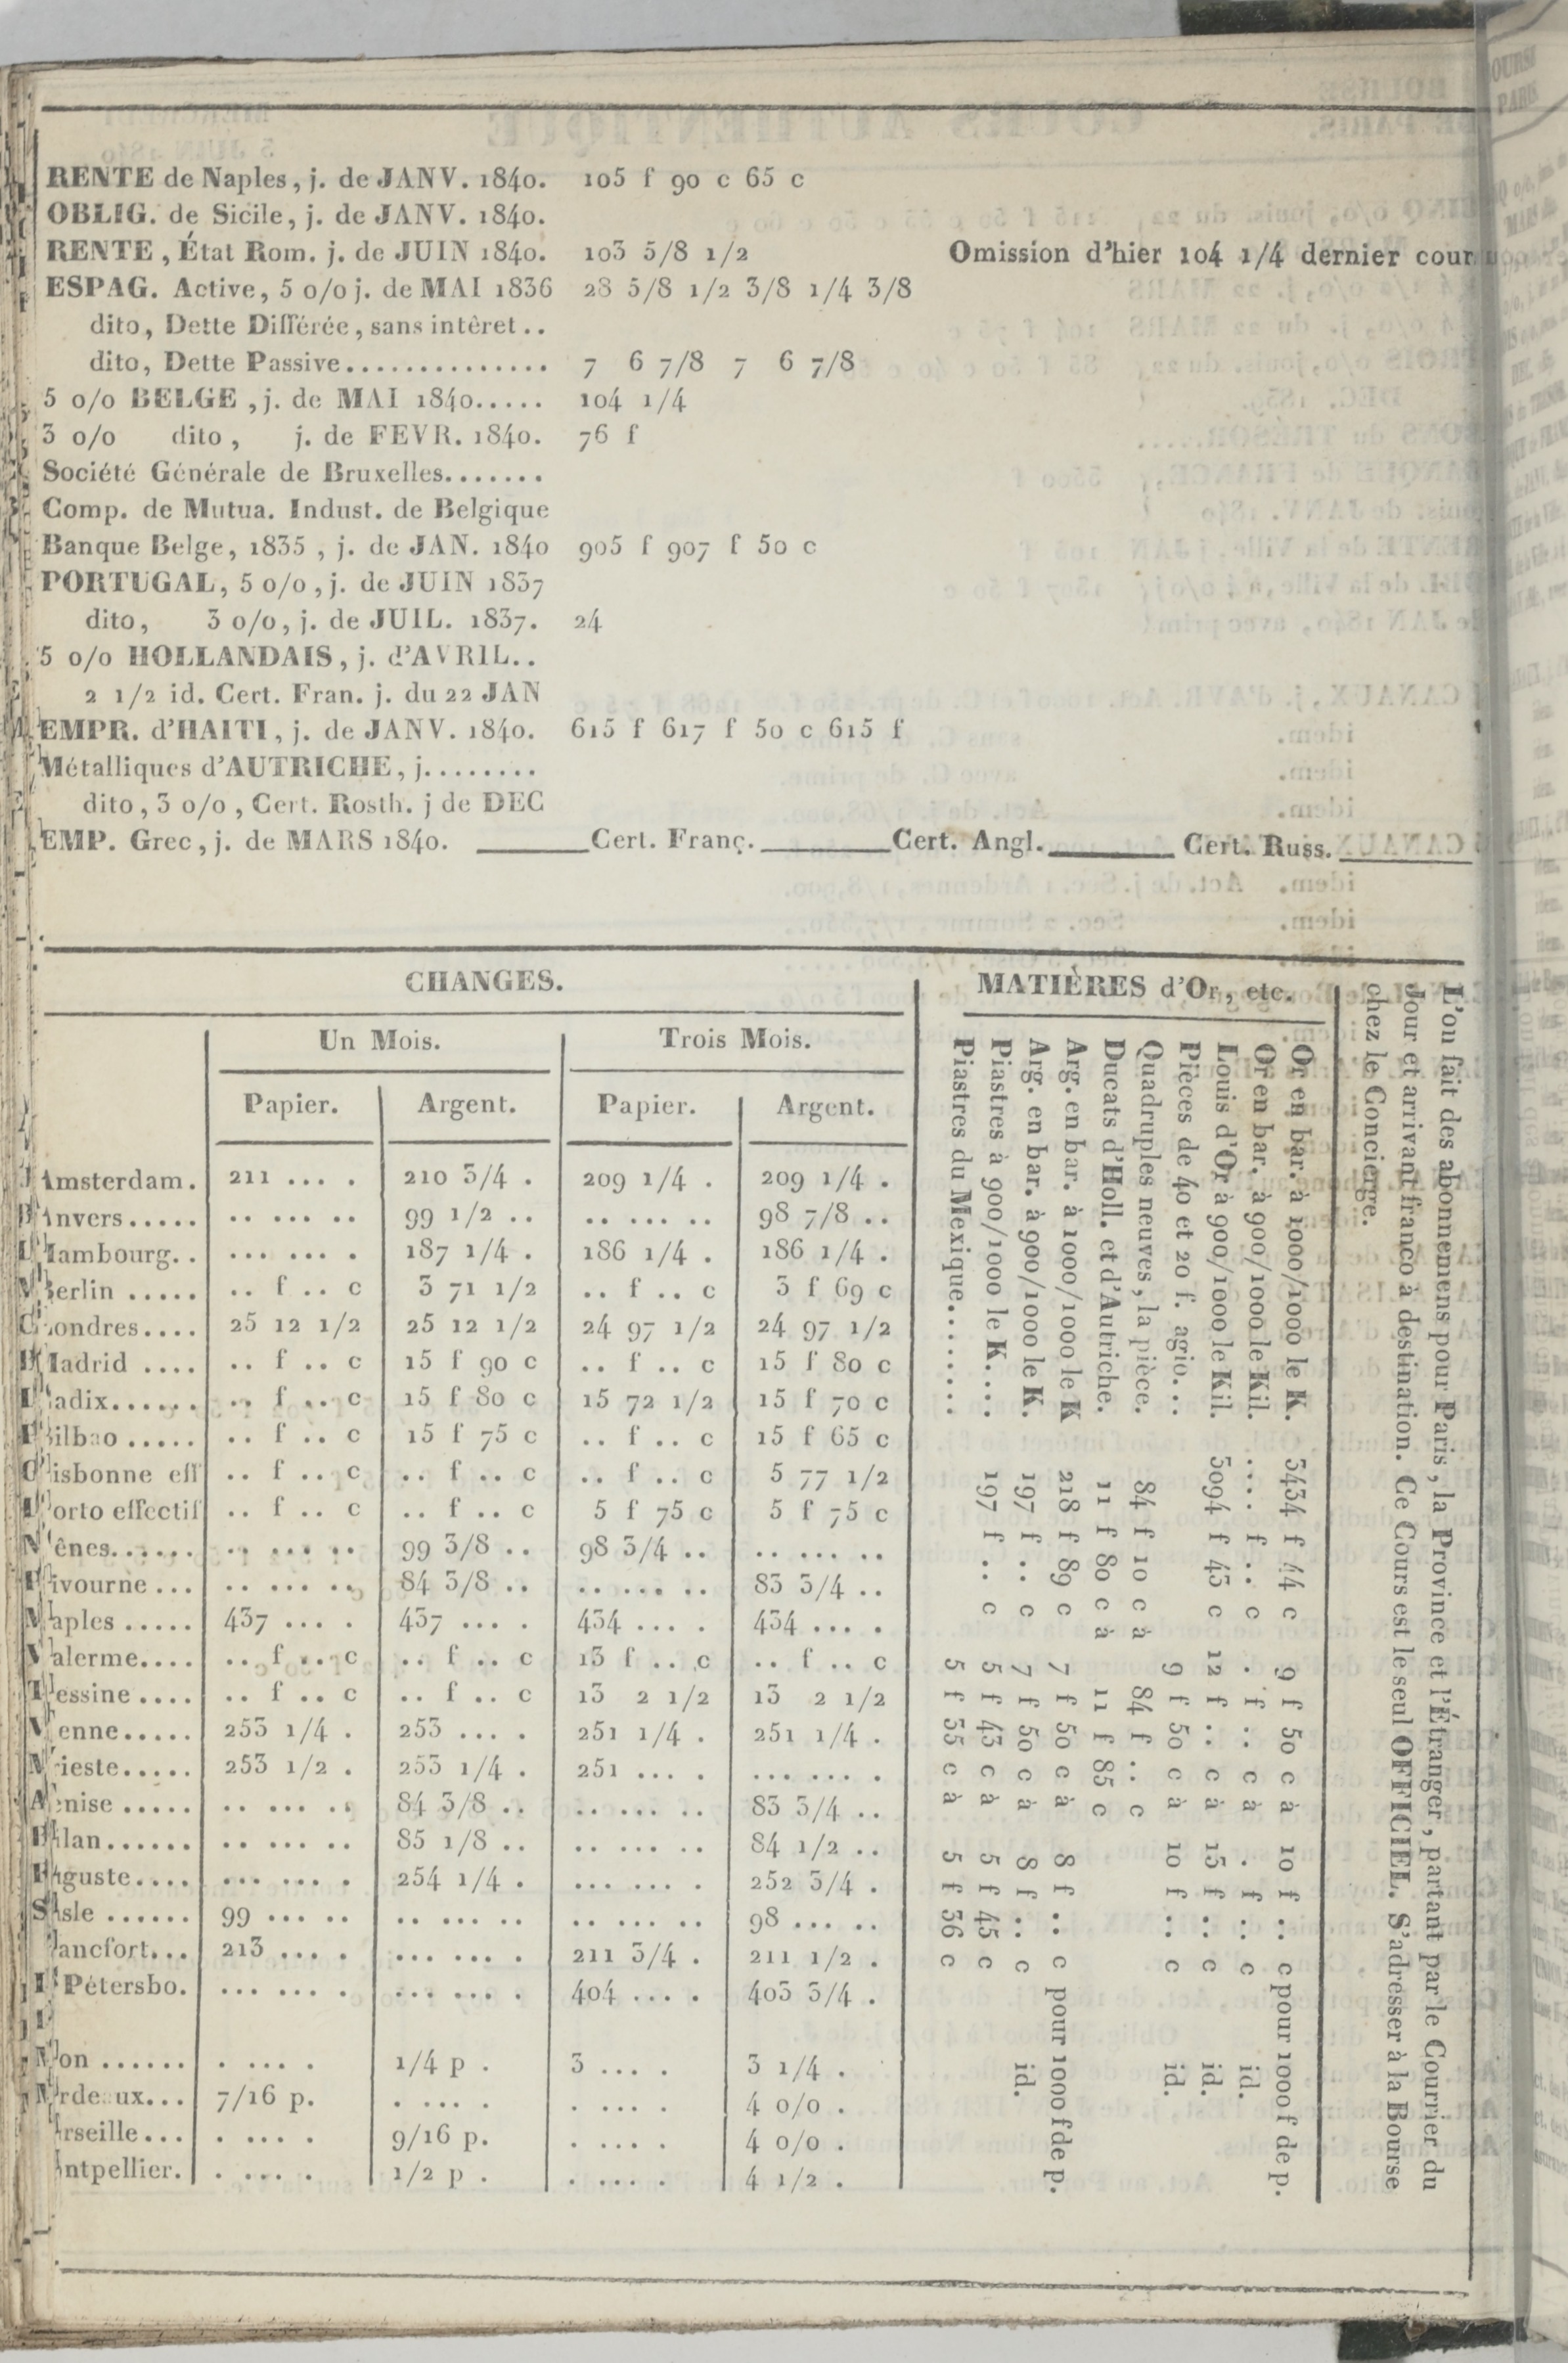 RENTE de Naples, j. de JANV. 1840. 105 f 90 c 65 c
OBLIG. de Sicile, j. de JANV. 1840.
RENTE, État Rom. j. de JUIN 1840. 103 5/8 1/2 Omission d'hier 104 1/4 dernier cour
ESPAG. Active, 5 o/o j. de MAI 1836 28 5/8 1/2 3/8 1/4 3/8
dito, Dette Différée, sans intêret..
dito, Dette Passive.............. 7 6 7/8 7 6 7/8
5 o/o BELGE, j. de MAI 1840..... 104 1/4
3 o/o dito, j. de FEVR. 1840. 76 f
Société Générale de Bruxelles.......
Comp. de Mutua. Indust. de Belgique
Banque Belge, 1835, j. de JAN. 1840 905 f 907 f 50 c
PORTUGAL, 5 o/o, j. de JUIN 1837
dito, 3 o/o, j. de JUIL. 1837. 24
5 o/o HOLLANDAIS, j. d'AVRIL..
2 1/2 id. Cert. Fran. j. du 22 JAN
EMPR. d'HAITI, j. de JANV. 1840. 615 f 617 f 50 c 615 f
Métalliques d'AUTRICHE, j........
dito, 3 o/o, Cert. Rosth. j de DEC
EMP. Grec, j. de MARS 1840. ______Cert. Franç.______Cert. Angl.______ Cert. Russ.______
CHANGES.
Un Mois. Trois Mois.
Papier. Argent. Papier. Argent.
Amsterdam. 211 .... . 210 3/4 . 209 1/4 . 209 1/4 .
Anvers..... .. ... .. 99 1/2 .. .. ... .. 98 7/8 ..
Hambourg.. ... ... . 187 1/4 . 186 1/4 . 186 1/4 .
Berlin ..... .. f .. c 3 71 1/2 .. f .. c 3 f 69 c
ondres.... 25 12 1/2 25 12 1/2 24 97 1/2 24 97 1/2
Madrid .... .. f .. c 15 f 90 c .. f .. c 15 f 80 c
adix...... .. f .. c 15 f 80 c 15 72 1/2 15 f 70 c
ilbao ..... .. f .. c 15 f 75 c .. f .. c 15 f 65 c
isbonne eff .. f .. c .. f .. c .. f .. c 5 77 1/2
orto effectif .. f .. c .. f .. c 5 f 75 c 5 f 75 c
ênes...... .. ... .. 99 3/8 .. 98 3/4 .. .. ... ..
ivourne ... .. ... .. 84 3/8 .. .. ... .. 83 3/4 ..
aples ..... 437 ... . 437 ... . 434 ... . 434 ... .
alerme.... .. f .. c .. f .. c 13 f .. c .. f .. c
essine .... .. f .. c .. f .. c 13 2 1/2 13 2 1/2
enne..... 253 1/4 . 253 ... . 251 1/4 . 251 1/4 .
rieste..... 253 1/2 . 253 1/4 . 251 ... . ... ... .
enise ..... .. ... .. 84 3/8 .. .. ... .. 83 3/4 ..
ilan...... .. ... .. 85 1/8 .. .. ... .. 84 1/2 ..
guste.... ... ... . 254 1/4 . ... ... . 252 3/4 .
sle ...... 99 ... .. .. ... .. .. ... .. 98 ... ..
ancfort... 213 ... . ... ... . 211 3/4 . 211 1/2 .
Pétersbo. ... ... . ... ... . 404 ... . 403 3/4 .
on ...... . ... . 1/4 p . 3 ... . 3 1/4 .
rdeaux... 7/16 p. . ... . . ... . 4 o/o .
rseille... . ... . 9/16 p. . ... . 4 o/o .
ntpellier. . ... . 1/2 p . . ... . 4 1/2 .
MATIÈRES d'Or, etc.
Or en bar. à 1000/1000 le K. 3434 f 44 c 9 f 50 c à 10 f .. c pour 1000 f de p.
Or en bar. à 900/1000 le Kil. .... f .. c . f .. c à . f .. c id.
Louis d'Or à 900/1000 le Kil. 3094 f 43 c 12 f .. c à 13 f .. c id.
Pièces de 40 et 20 f. agio... 9 f 50 c à 10 f .. c id.
Quadruples neuves, la pièce. 84 f 10 c à 84 f .. c
Ducats d'Holl. et d'Autriche. 11 f 80 c à 11 f 85 c
Arg. en bar. à 1000/1000 le K 218 f 89 c 7 f 50 c à 8 f .. c pour 1000 f de p.
Arg. en bar. à 900/1000 le K. 197 f .. c 7 f 50 c à 8 f .. c id.
Piastres à 900/1000 le K.... 197 f .. c 5 f 43 c à 5 f 45 c
Piastres du Mexique........ 5 f 35 c à 5 f 36 c
L'on fait des abonnemens pour Paris, la Province et l'Étranger, partant par le Courrier du
Jour et arrivant franco à destination. Ce Cours est le seul OFFICIEL. S'adresser à la Bourse
chez le Concierge.